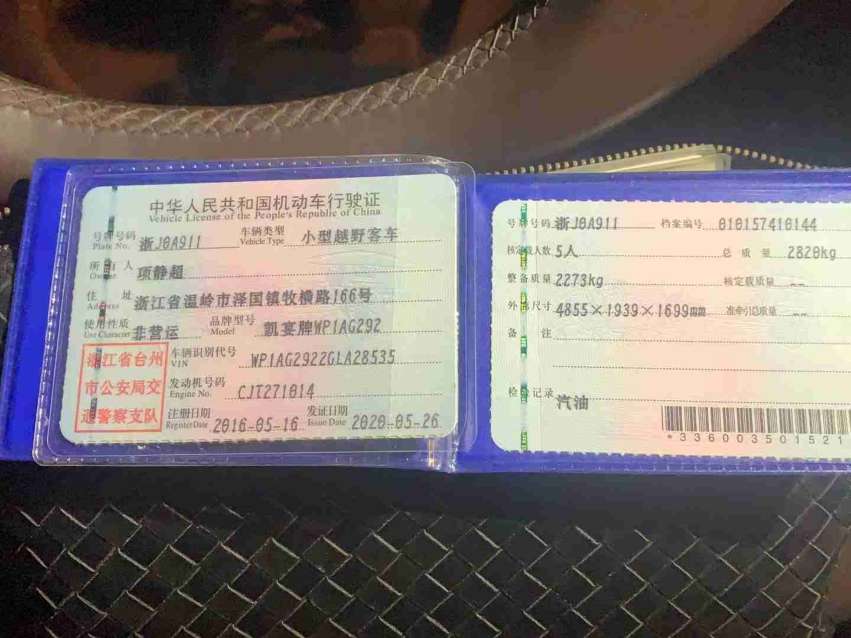 中华人民共和国机动车行驶证
Vehicle License of the People's Republic of China
号牌号码 Plate No. 浙J0A911 车辆类型 Vehicle Type 小型越野客车
所有人 Owner 项静超
住址 Address 浙江省温岭市泽国镇牧横路166号
使用性质 Use Character 非营运 品牌型号 Model 凯宴牌WP1AG292
浙江省台州
市公安局交
通警察支队
车辆识别代号 VIN WP1AG2922GLA28535
发动机号码 Engine No. CJT271014
注册日期 Register Date 2016-05-16 发证日期 Issue Date 2020-05-26
号牌号码 浙J0A911 档案编号 010157410144
核定载人数 5人 总质量 2820kg
整备质量 2273kg 核定载质量 --
外廓尺寸 4855×1939×1699mm 准牵引总质量 --
备注
检验记录
汽油
*336003501521